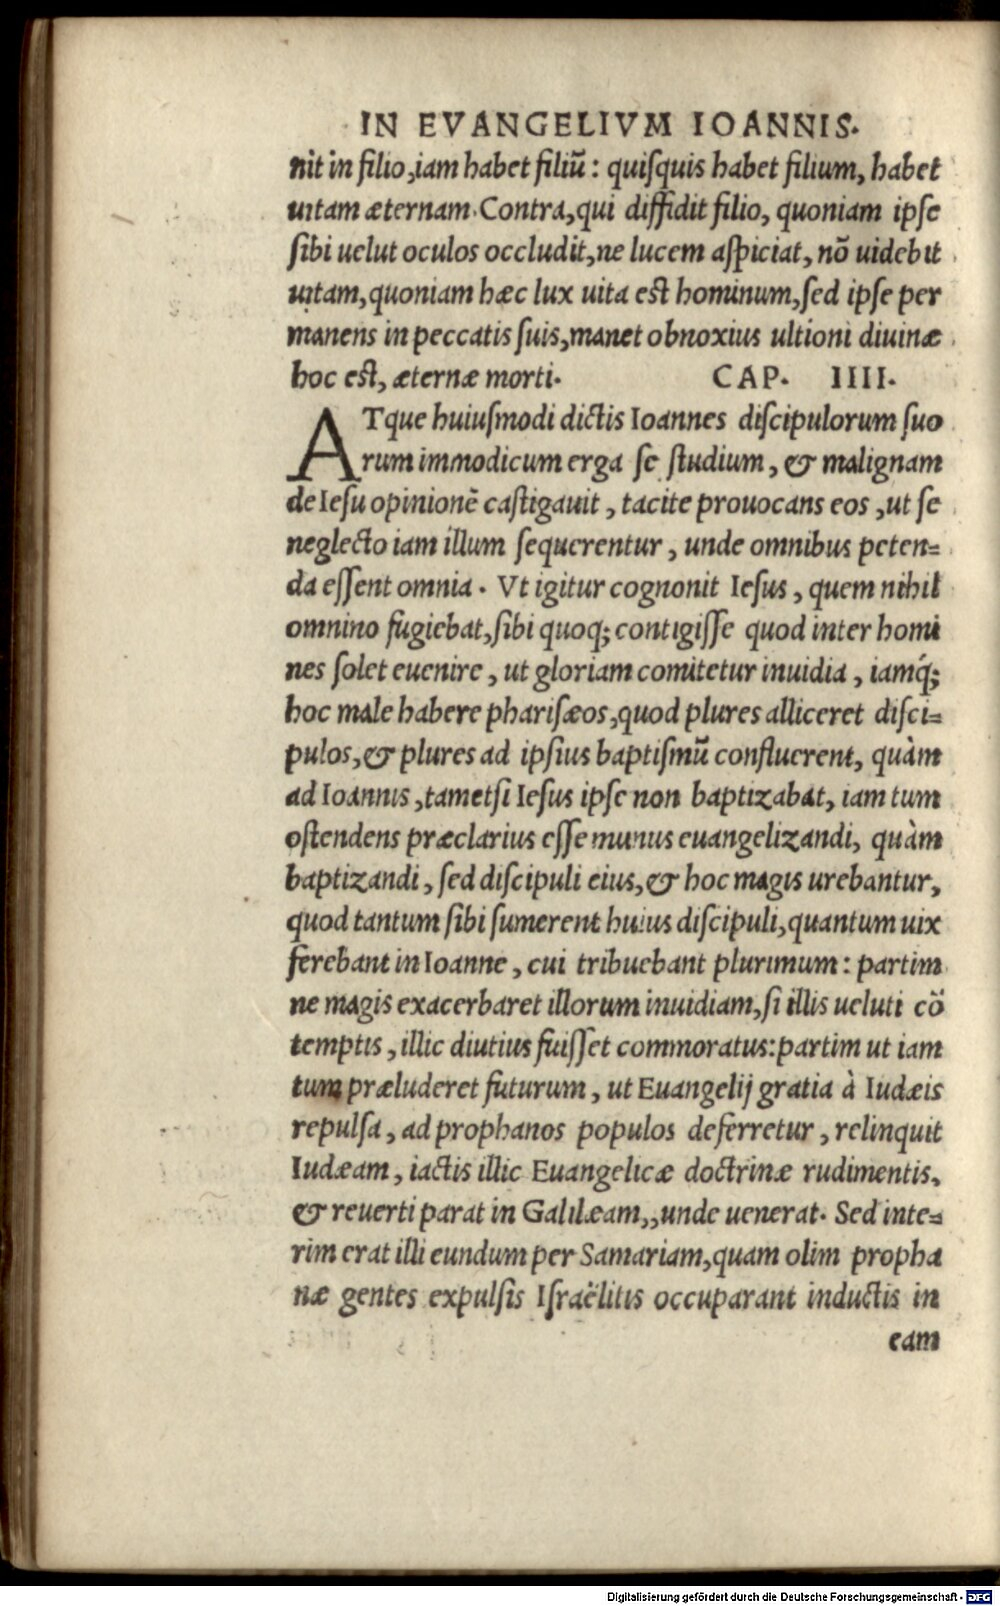 IN EVANGELIVM IOANNIS.
nit in filio, iam habet filiũ: quiſquis habet filium, habet
uitam æternam. Contra, qui diffidit filio, quoniam ipſe
ſibi uelut oculos occludit, ne lucem aſpiciat, nõ uidebit
uitam, quoniam hæc lux uita eſt hominum, ſed ipſe per
manens in peccatis ſuis, manet obnoxius ultioni diuinæ
hoc eſt, æternæ morti. CAP. IIII.
ATque huiuſmodi dictis Ioannes diſcipulorum ſuo
rum immodicum erga ſe ſtudium, & malignam
de Ieſu opinionẽ caſtigauit, tacite prouocans eos, ut ſe
neglecto iam illum ſequerentur, unde omnibus peten=
da eſſent omnia. Vt igitur cognonit Ieſus, quem nihil
omnino fugiebat, ſibi quoq; contigiſſe quod inter homi
nes ſolet euenire, ut gloriam comitetur inuidia, iamq́;
hoc male habere phariſæos, quod plures alliceret diſci=
pulos, & plures ad ipſius baptiſmũ confluerent, quàm
ad Ioannis, tametſi Ieſus ipſe non baptizabat, iam tum
oſtendens præclarius eſſe munus euangelizandi, quàm
baptizandi, ſed diſcipuli eius, & hoc magis urebantur,
quod tantum ſibi ſumerent huius diſcipuli, quantum uix
ferebant in Ioanne, cui tribuebant plurimum: partim
ne magis exacerbaret illorum inuidiam, ſi illis ueluti cõ
temptis, illic diutius fuiſſet commoratus: partim ut iam
tum præluderet futurum, ut Euangelij gratia à Iudæis
repulſa, ad prophanos populos deferretur, relinquit
Iudæam, iactis illic Euangelicæ doctrinæ rudimentis,
& reuerti parat in Galilæam,, unde uenerat. Sed inte=
rim erat illi eundum per Samariam, quam olim propha
næ gentes expulſis Iſraëlitis occuparant inductis in
eam
Digitalisierung gefördert durch die Deutsche Forschungsgemeinschaft - DFG